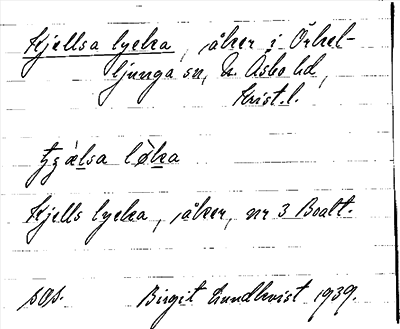 Kjellsa lycka, åker i Örkel-
ljunga sn, N. Åsbo hd,
Krist.l.
Kjells lycka, åker, nr 3 Boalt.
sås. Birgit Lundkvist 1939.